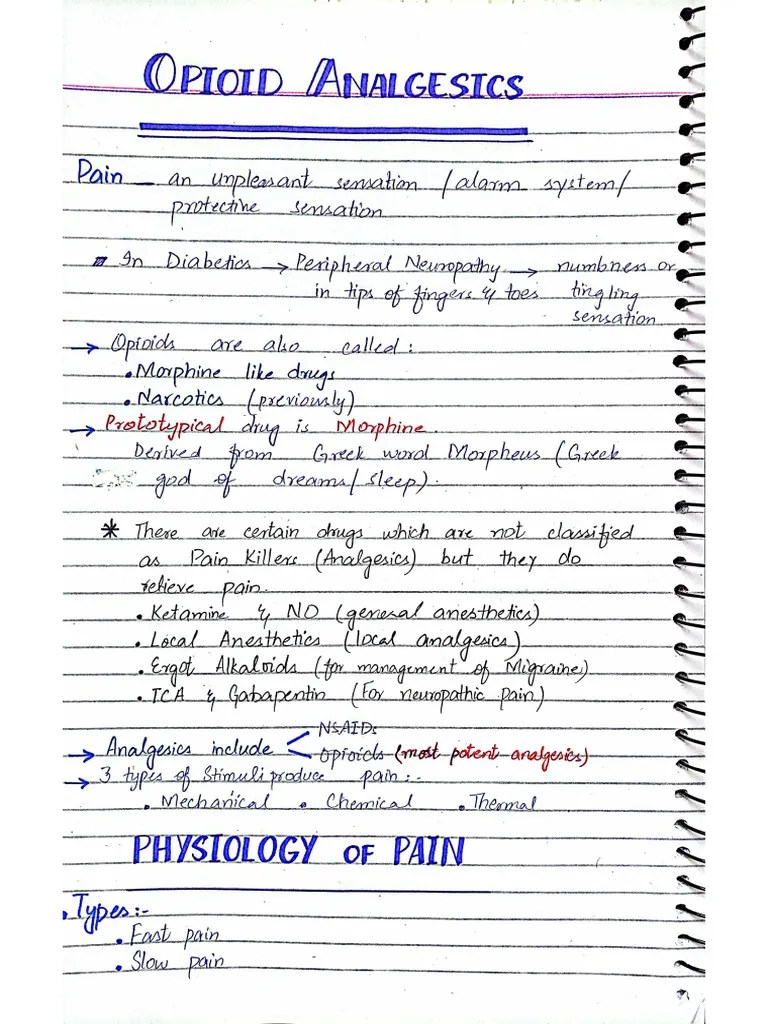 OPIOID ANALGESICS
Pain — an unpleasant sensation / alarm system /
protective sensation
In Diabetics → Peripheral Neuropathy → numbness or
in tips of fingers & toes tingling
sensation
→ Opioids are also called :
• Morphine like drugs
• Narcotics (previously)
→ Prototypical drug is Morphine.
Derived from Greek word Morpheus (Greek
god of dreams/sleep).
* There are certain drugs which are not classified
as Pain Killers (Analgesics) but they do
relieve pain.
• Ketamine & NO (general anesthetics)
• Local Anesthetics (local analgesics)
• Ergot Alkaloids (for management of Migraine)
• TCA & Gabapentin (For neuropathic pain)
NSAIDs
→ Analgesics include < Opioids (most potent analgesics)
→ 3 types of Stimuli produce pain :-
• Mechanical • Chemical • Thermal
PHYSIOLOGY OF PAIN
• Types :-
• Fast pain
• Slow pain